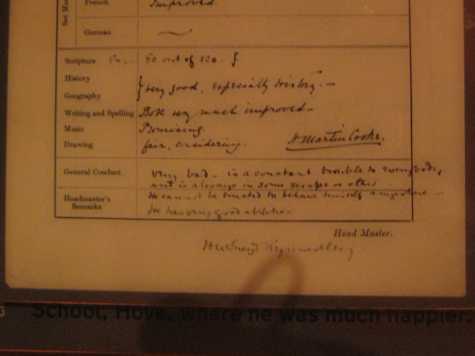 Set Ma
French Improved.
German
Scripture 60 out of 120.
History
Geography very good, especially history.
Writing and Spelling Both very much improved
Music Promising
Drawing fair, considering. H Martin Cooke.
General Conduct Very bad - is a constant trouble to everybody
and is always in some scrape or other
Headmaster's Remarks He cannot be trusted to behave himself anywhere
He has very good abilities
Head Master.
School, Hove, where he was much happier.